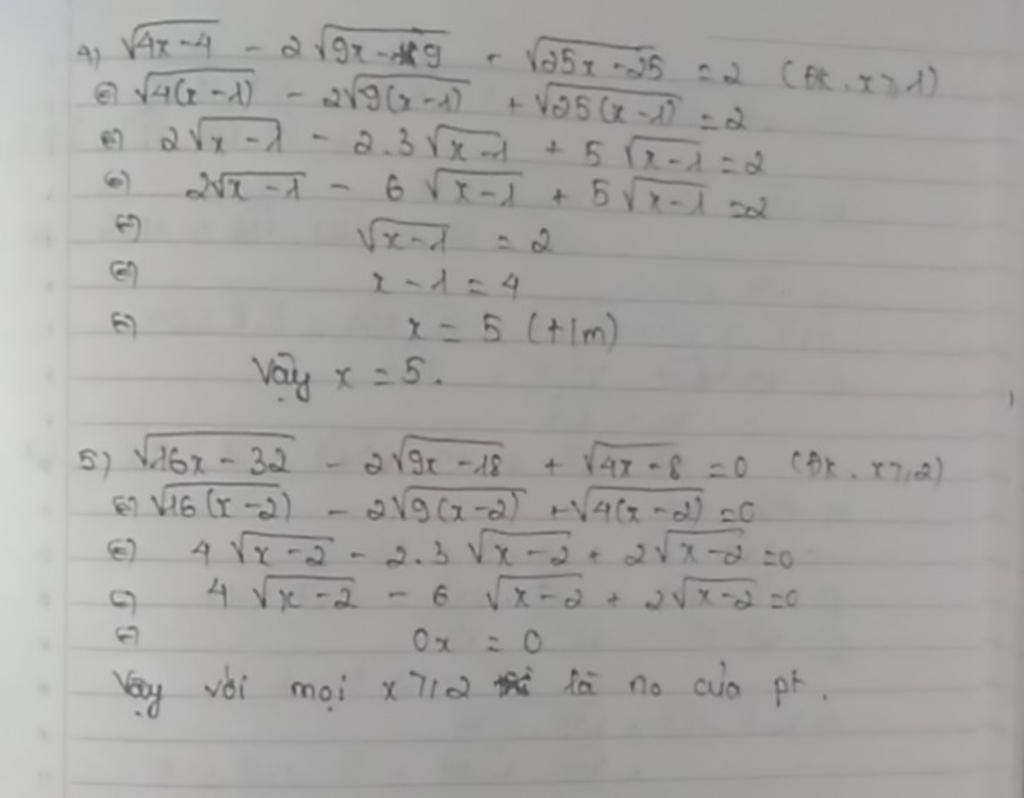 4) √(4x-4) - 2√(9x-9) + √(25x-25) = 2 (ĐK. x ≥ 1)
⇔ √(4(x-1)) - 2√(9(x-1)) + √(25(x-1)) = 2
⇔ 2√(x-1) - 2.3√(x-1) + 5√(x-1) = 2
⇔ 2√(x-1) - 6√(x-1) + 5√(x-1) = 2
⇔ √(x-1) = 2
⇔ x - 1 = 4
⇔ x = 5 (t/m)
Vậy x = 5.
5) √(16x-32) - 2√(9x-18) + √(4x-8) = 0 (ĐK. x ≥ 2)
⇔ √(16(x-2)) - 2√(9(x-2)) + √(4(x-2)) = 0
⇔ 4√(x-2) - 2.3√(x-2) + 2√(x-2) = 0
⇔ 4√(x-2) - 6√(x-2) + 2√(x-2) = 0
⇔ 0x = 0
Vậy với mọi x ≥ 2 là no của pt.